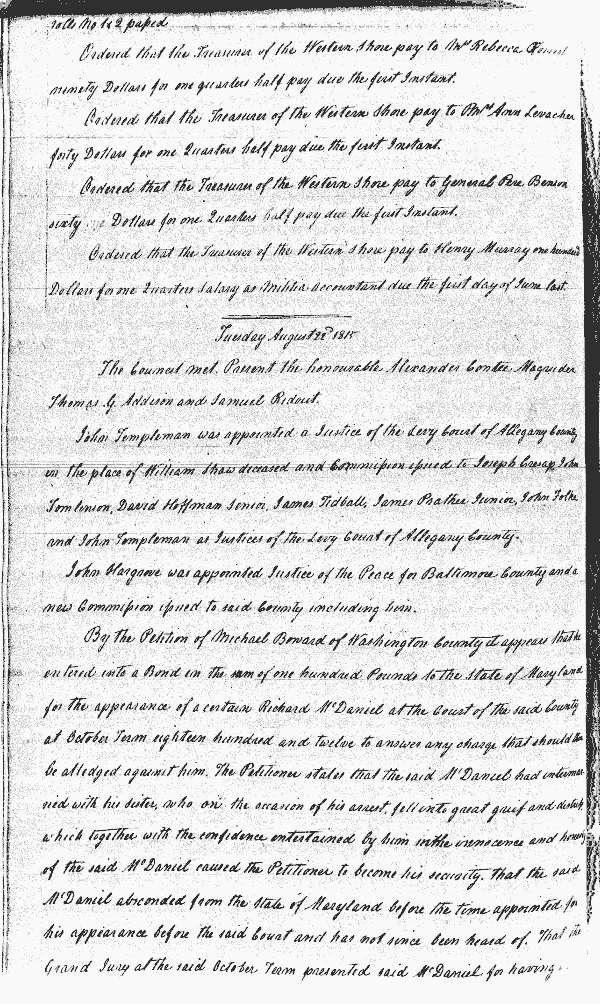 rolls No 1 & 2 passed
Ordered that the Treasurer of the Western Shore pay to Mrs Rebecca
ninety Dollars for one quarters half pay due the first Instant.
Ordered that the Treasurer of the Western Shore pay to Ann Levacher
forty Dollars for one Quarters half pay due the first Instant.
Ordered that the Treasurer of the Western Shore pay to General Pere Benson
sixty Dollars for one Quarters half pay due the first Instant.
Ordered that the Treasurer of the Western Shore pay to Henry Murray one hundred
Dollars for one Quarters Salary as Militia accountant due the first day of June last.
Tuesday August 22d 1815
The Council met. Present the honourable Alexander Contee Magruder
Thomas G. Addison and Samuel Ridout.
John Templeman was appointed a Justice of the Levy Court of Allegany County
in the place of William Shaw deceased and Commission issued to Joseph Cresap, John
Tomlinson, David Hoffman Senior, James Tidball, James Prather Junior, John Folke
and John Templeman as Justices of the Levy Court of Allegany County.
John Hargrove was appointed Justice of the Peace for Baltimore County and a
new Commission issued to said County including him.
By the Petition of Michael Boward of Washington County it appears that he
entered into a Bond in the sum of one hundred Pounds to the State of Maryland
for the appearance of a certain Richard McDaniel at the Court of the said County
at October Term eighteen hundred and twelve to answer any charge that should then
be alledged against him. The Petitioner states that the said McDaniel had intermar
ried with his sister, who on the occasion of his arrest, fell into great grief and
which together with the confidence entertained by him in the innocence and honesty
of the said McDaniel caused the Petitioner to become his security. That the said
McDaniel absconded from the State of Maryland before the time appointed for
his appearance before the said Court and has not since been heard of. That the
Grand Jury at the said October Term presented said McDaniel for having